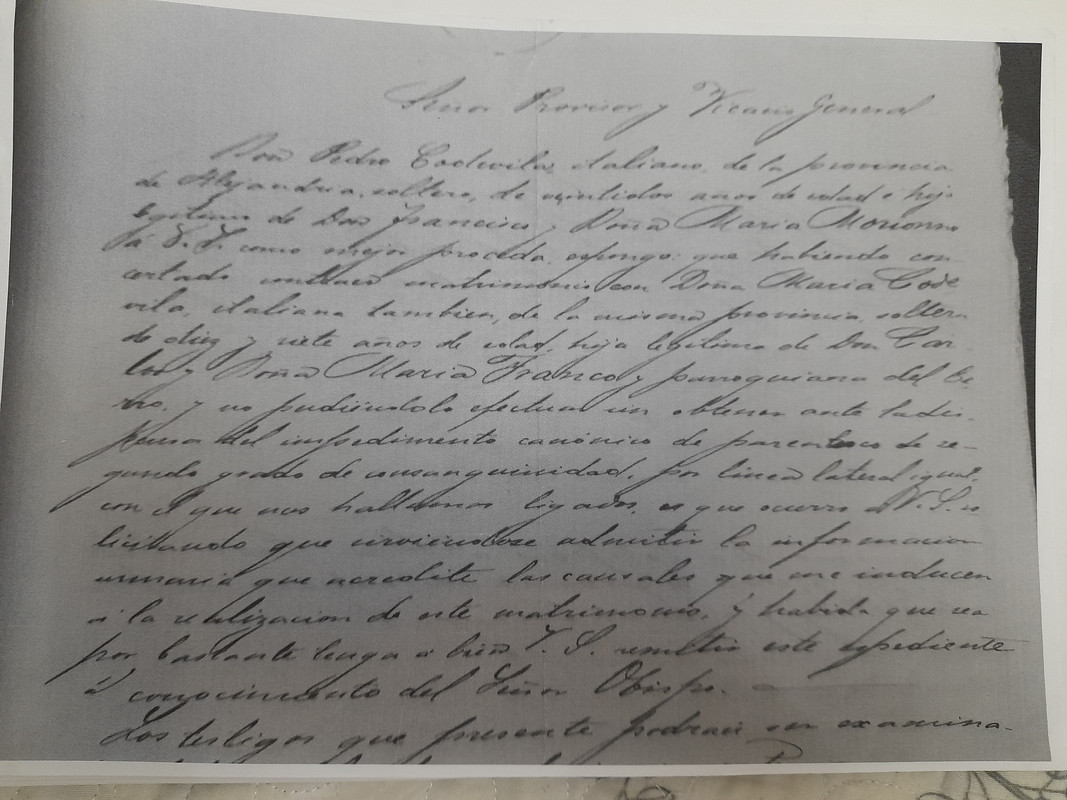 Señor Provisor y Vicario General
Don Pedro Codevila, italiano, de la provincia
de Alejandria, soltero, de veintidos años de edad e hijo
legitimo de Don Francisco y Doña Maria Morionno
á V. S. como mejor proceda, espongo: que habiendo con-
certado contraer matrimonio con Doña Maria Code
vila, italiana tambien, de la misma provincia, soltera
de diez y siete años de edad, hija legitima de Don Car-
los y Doña Maria Franco y parroquiana del Ce-
rro, y no pudiéndolo efectuar sin obtener ante la dis-
pensa del impedimento canónico de parentesco de se-
gundo grado de consanguinidad, por linea lateral igual,
con el que nos hallamos ligados, es que ocurro á V. S. so
licitando que sirviendose admitir la informacion
sumaria que acredite las causales que me inducen
á la realizacion de este matrimonio, y habida que sea
por bastante tenga á bien V. S. remitir este espediente
á conocimiento del Señor Obispo.
Los testigos que presente podran ser examina-